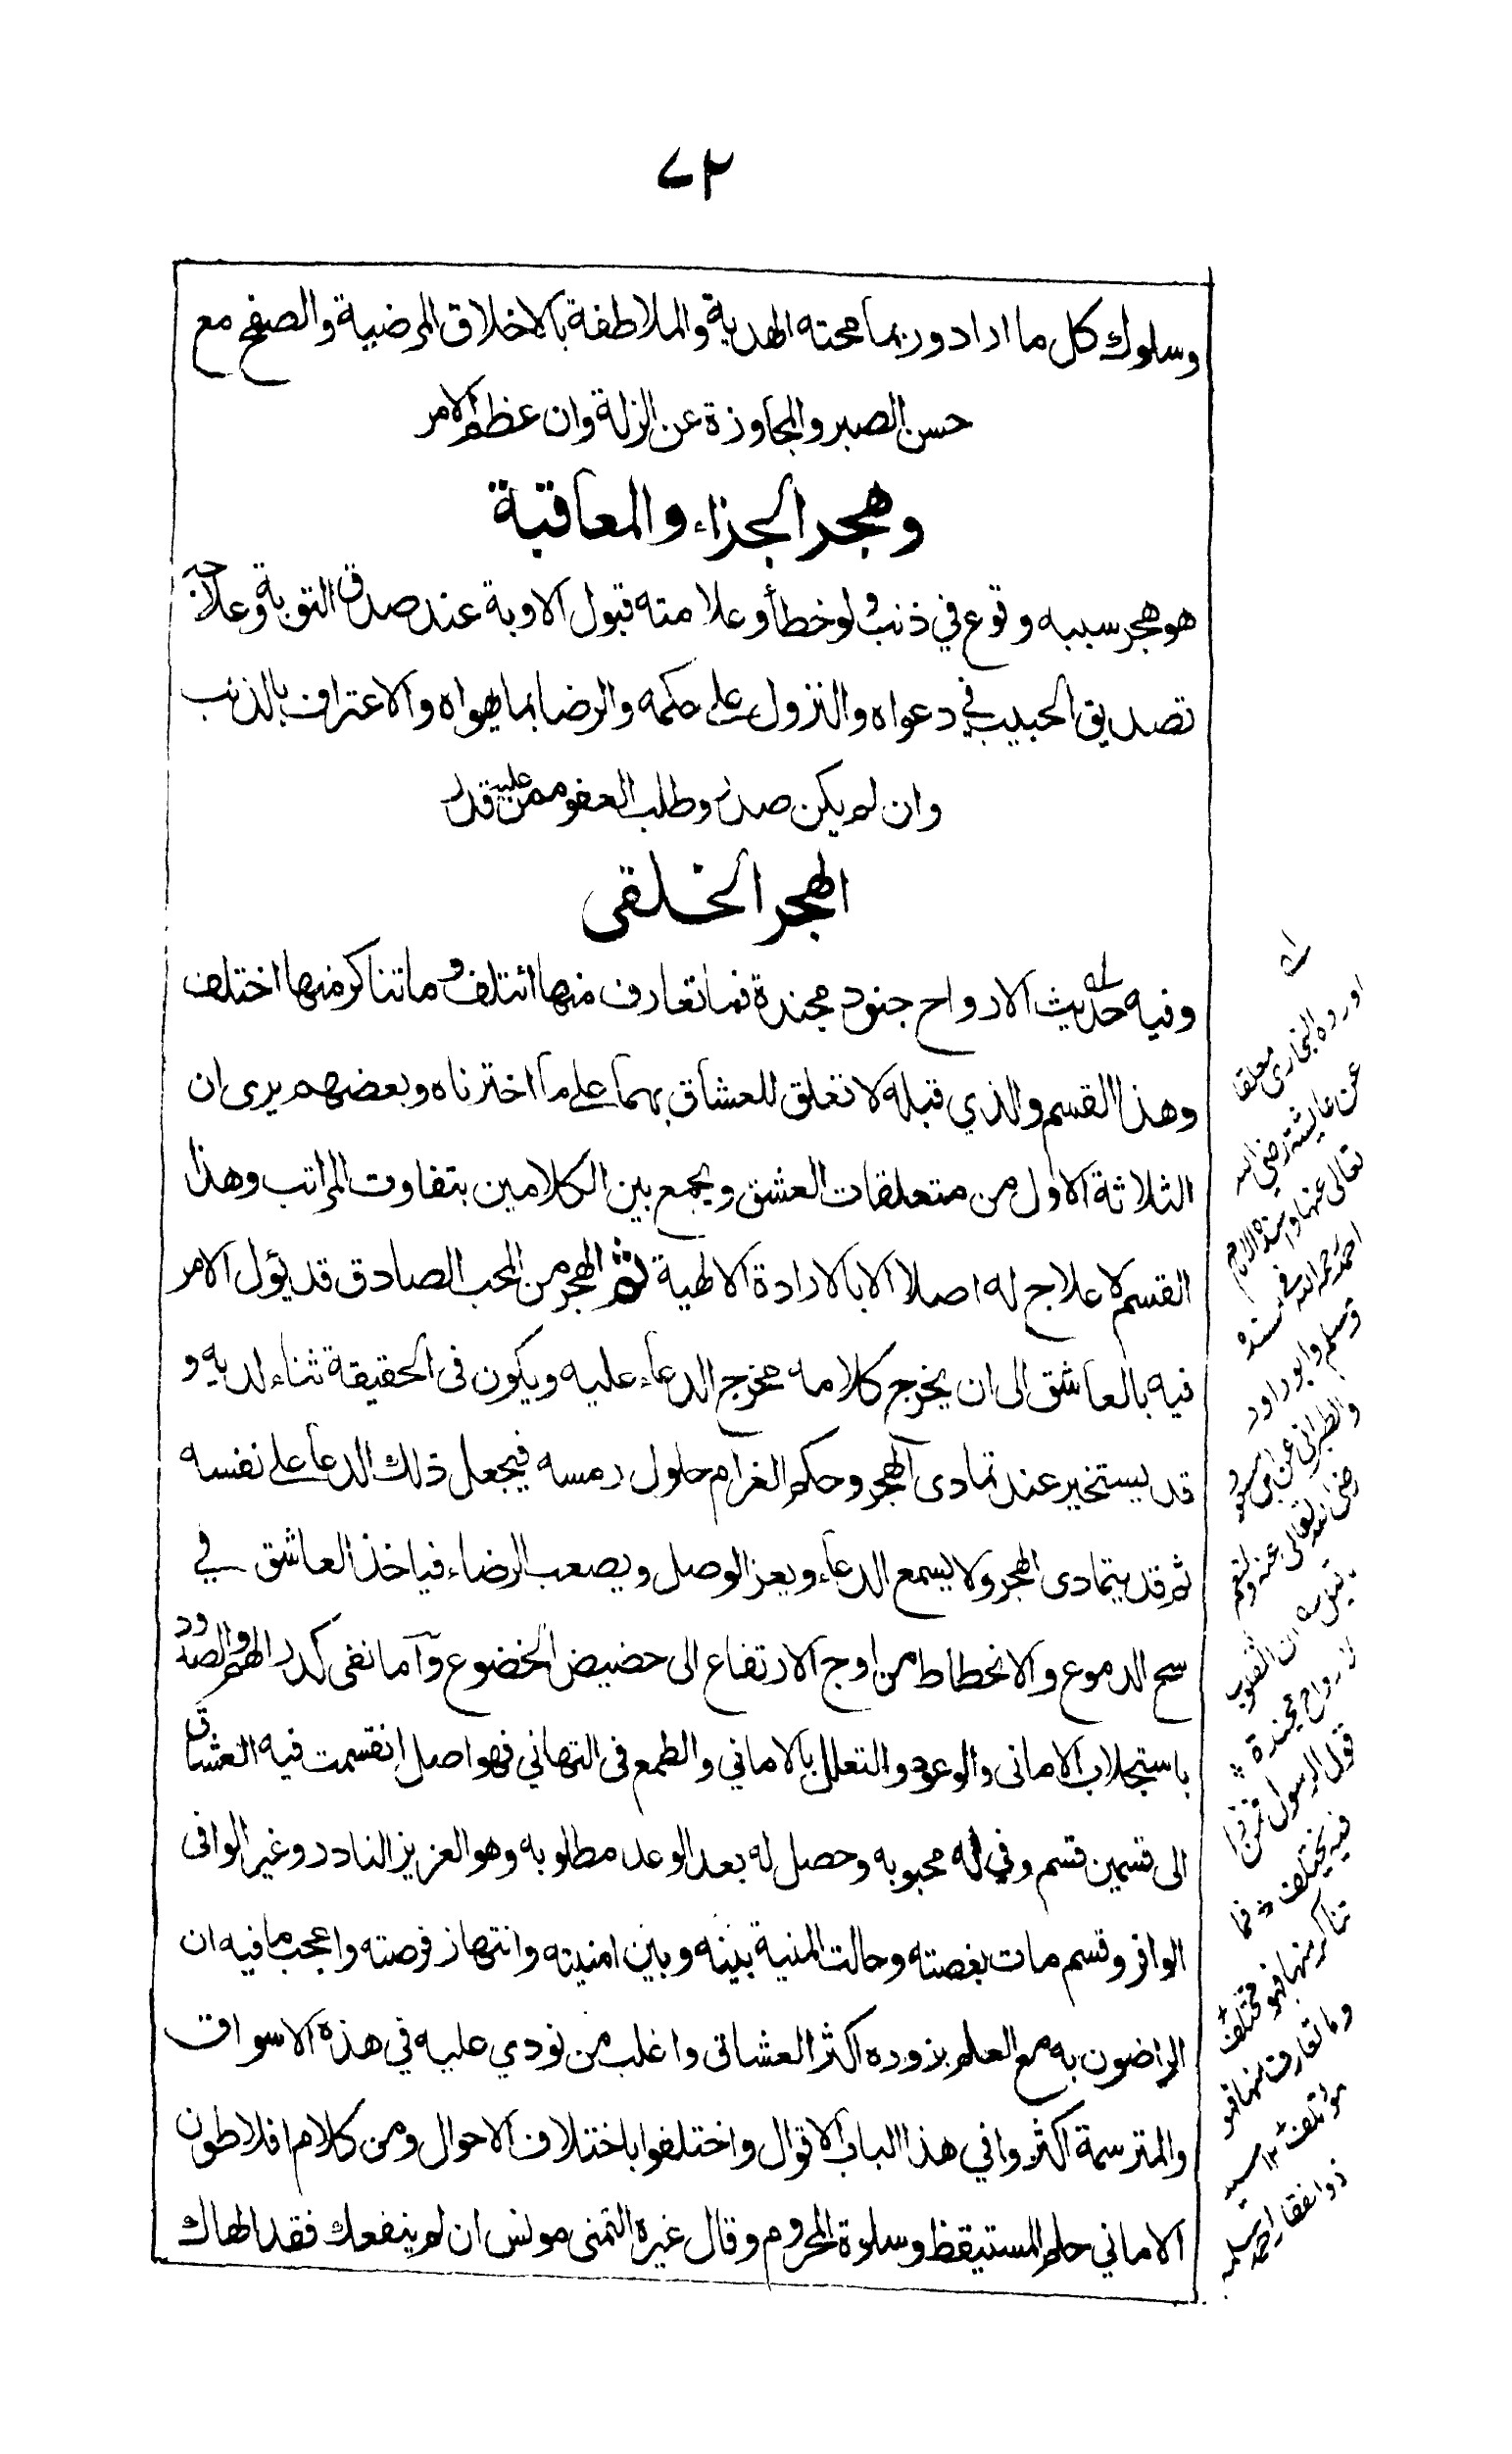 ٧٢
وسلوك كل ما اراد وربما محته الهدية والملاطفة بالاخلاق المرضية والصفح مع
حسن الصبر والمجاوزة عن الزلة وان عظم الامر
وهجر الجزاء والمعاقبة
هو هجر سببه وقوع في ذنب ولو خطأ وعلامته قبول الاوبة عند صدق التوبة وعلاجه
تصديق الحبيب في دعواه والنزول على حكمه والرضا بما يهواه والاعتراف بالذنب
وان لم يكن صدر وطلب العفو ممن عليه قدر
الهجر الخلقى
وفيه حديث الارواح جنود مجندة فما تعارف منها ائتلف وما تناكر منها اختلف
وهذا القسم والذي قبله لا تعلق للعشاق بهما على ما اخترناه وبعضهم يرى ان
الثلاثة الاول من متعلقات العشق ويجمع بين الكلامين بتفاوت المراتب وهذا
القسم لا علاج له اصلا الا بالارادة الالهية ثم الهجر من المحب الصادق قد يؤل الامر
فيه بالعاشق الى ان يخرج كلامه مخرج الدعاء عليه ويكون فى الحقيقة ثناء لديه و
قد يستخير عند تمادى الهجر وحكم الغرام حلول رمسه فيجعل ذلك الدعا على نفسه
ثم قد يتمادى الهجر ولا يسمع الدعاء ويعز الوصل ويصعب الرضاء فياخذ العاشق في
سح الدموع والانحطاط من اوج الارتفاع الى حضيض الخضوع وآما نفى كدر الهم والصدود
باستجلاب الامانى والوعود والتعلل بالاماني والطمع فى التهاني فهو اصل انقسمت فيه العشاق
الى قسمين قسم وفي له محبوبه وحصل له بعد الوعد مطلوبه وهو العزيز النادر وغير الوافى
الوافر وقسم مات بغصته وحالت المنية بينه وبين امنيته وانتهاز فرصته واعجب ما فيه ان
الراضون به مع العلم بزوره اكثر العشاق واغلب من نودي عليه في هذه الاسواق
والمترسمة اكثروا في هذا الباب الاقوال واختلفوا باختلاف الاحوال ومن كلام افلاطون
الاماني حلم المستيقظ وسلوة المحروم وقال غيره التمنى مونس ان لم ينفعك فقد الهاك
اورده البخارى معلقا
عن عايشة رضي الله
تعالى عنها واسنده الامام
احمد رحمه الله فى مسنده
ومسلم وابو داود
والطبرانى عن ابن مسعود
رضى الله تعالى عنه
ان القلوب
لارواح مجندة
قول الرسول فمن ذا
فيه يختلف فما
تناكر منها فهو مختلف
وما تعارف منها فهو
مؤتلف ١٢ سيد
ذوالفقار احمد سلمه